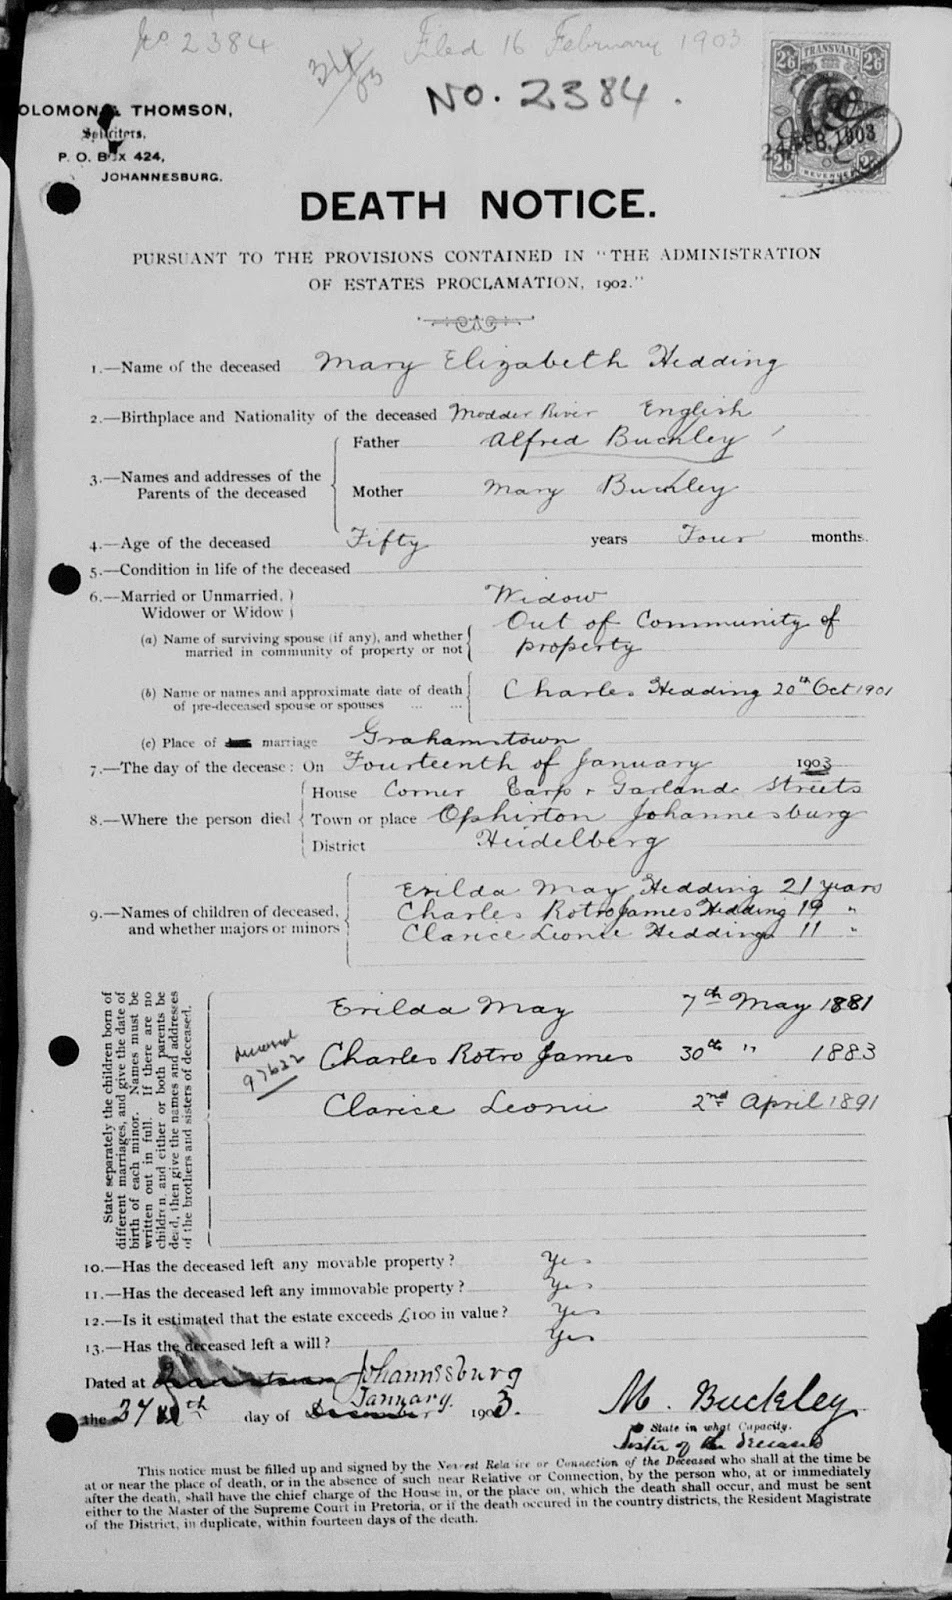 No 2384
Filed 16 February 1903
No. 2384.
OLOMON & THOMSON,
Solicitors,
P. O. Box 424,
JOHANNESBURG.
TRANSVAAL
2/6 2/6
24 FEB. 1903
2/6 2/6
REVENUE
DEATH NOTICE.
PURSUANT TO THE PROVISIONS CONTAINED IN "THE ADMINISTRATION
OF ESTATES PROCLAMATION, 1902."
1.—Name of the deceased Mary Elizabeth Hedding
2.—Birthplace and Nationality of the deceased Modder River English
3.—Names and addresses of the Parents of the deceased
Father Alfred Buckley
Mother Mary Buckley
4.—Age of the deceased Fifty years Four months.
5.—Condition in life of the deceased
6.—Married or Unmarried, Widower or Widow Widow
(a) Name of surviving spouse (if any), and whether married in community of property or not
Out of Community of
property
(b) Name or names and approximate date of death of pre-deceased spouse or spouses ... ...
Charles Hedding 20th Oct 1901
(c) Place of marriage Grahamstown
7.—The day of the decease: On Fourteenth of January 1903
8.—Where the person died
House Corner Earp & Garland Streets
Town or place Ophirton Johannesburg
District Heidelberg
9.—Names of children of deceased, and whether majors or minors
Erilda May Hedding 21 years
Charles Rotro James Hedding 19 "
Clarice Leonie Hedding 11 "
State separately the children born of
different marriages, and give the date of
birth of each minor. Names must be
written out in full. If there are no
children, and either or both parents be
dead, then give the names and addresses
of the brothers and sisters of deceased.
Erilda May 7th May 1881
deceased
97622
Charles Rotro James 30th " 1883
Clarice Leonie 2nd April 1891
10.—Has the deceased left any movable property? Yes
11.—Has the deceased left any immovable property? Yes
12.—Is it estimated that the estate exceeds £100 in value? Yes
13.—Has the deceased left a will? Yes
Dated at Johannesburg
the 27th day of January. 1903.
M. Buckley
State in what Capacity.
Sister of the deceased
This notice must be filled up and signed by the Nearest Relative or Connection of the Deceased who shall at the time be
at or near the place of death, or in the absence of such near Relative or Connection, by the person who, at or immediately
after the death, shall have the chief charge of the House in, or the place on, which the death shall occur, and must be sent
either to the Master of the Supreme Court in Pretoria, or if the death occured in the country districts, the Resident Magistrate
of the District, in duplicate, within fourteen days of the death.